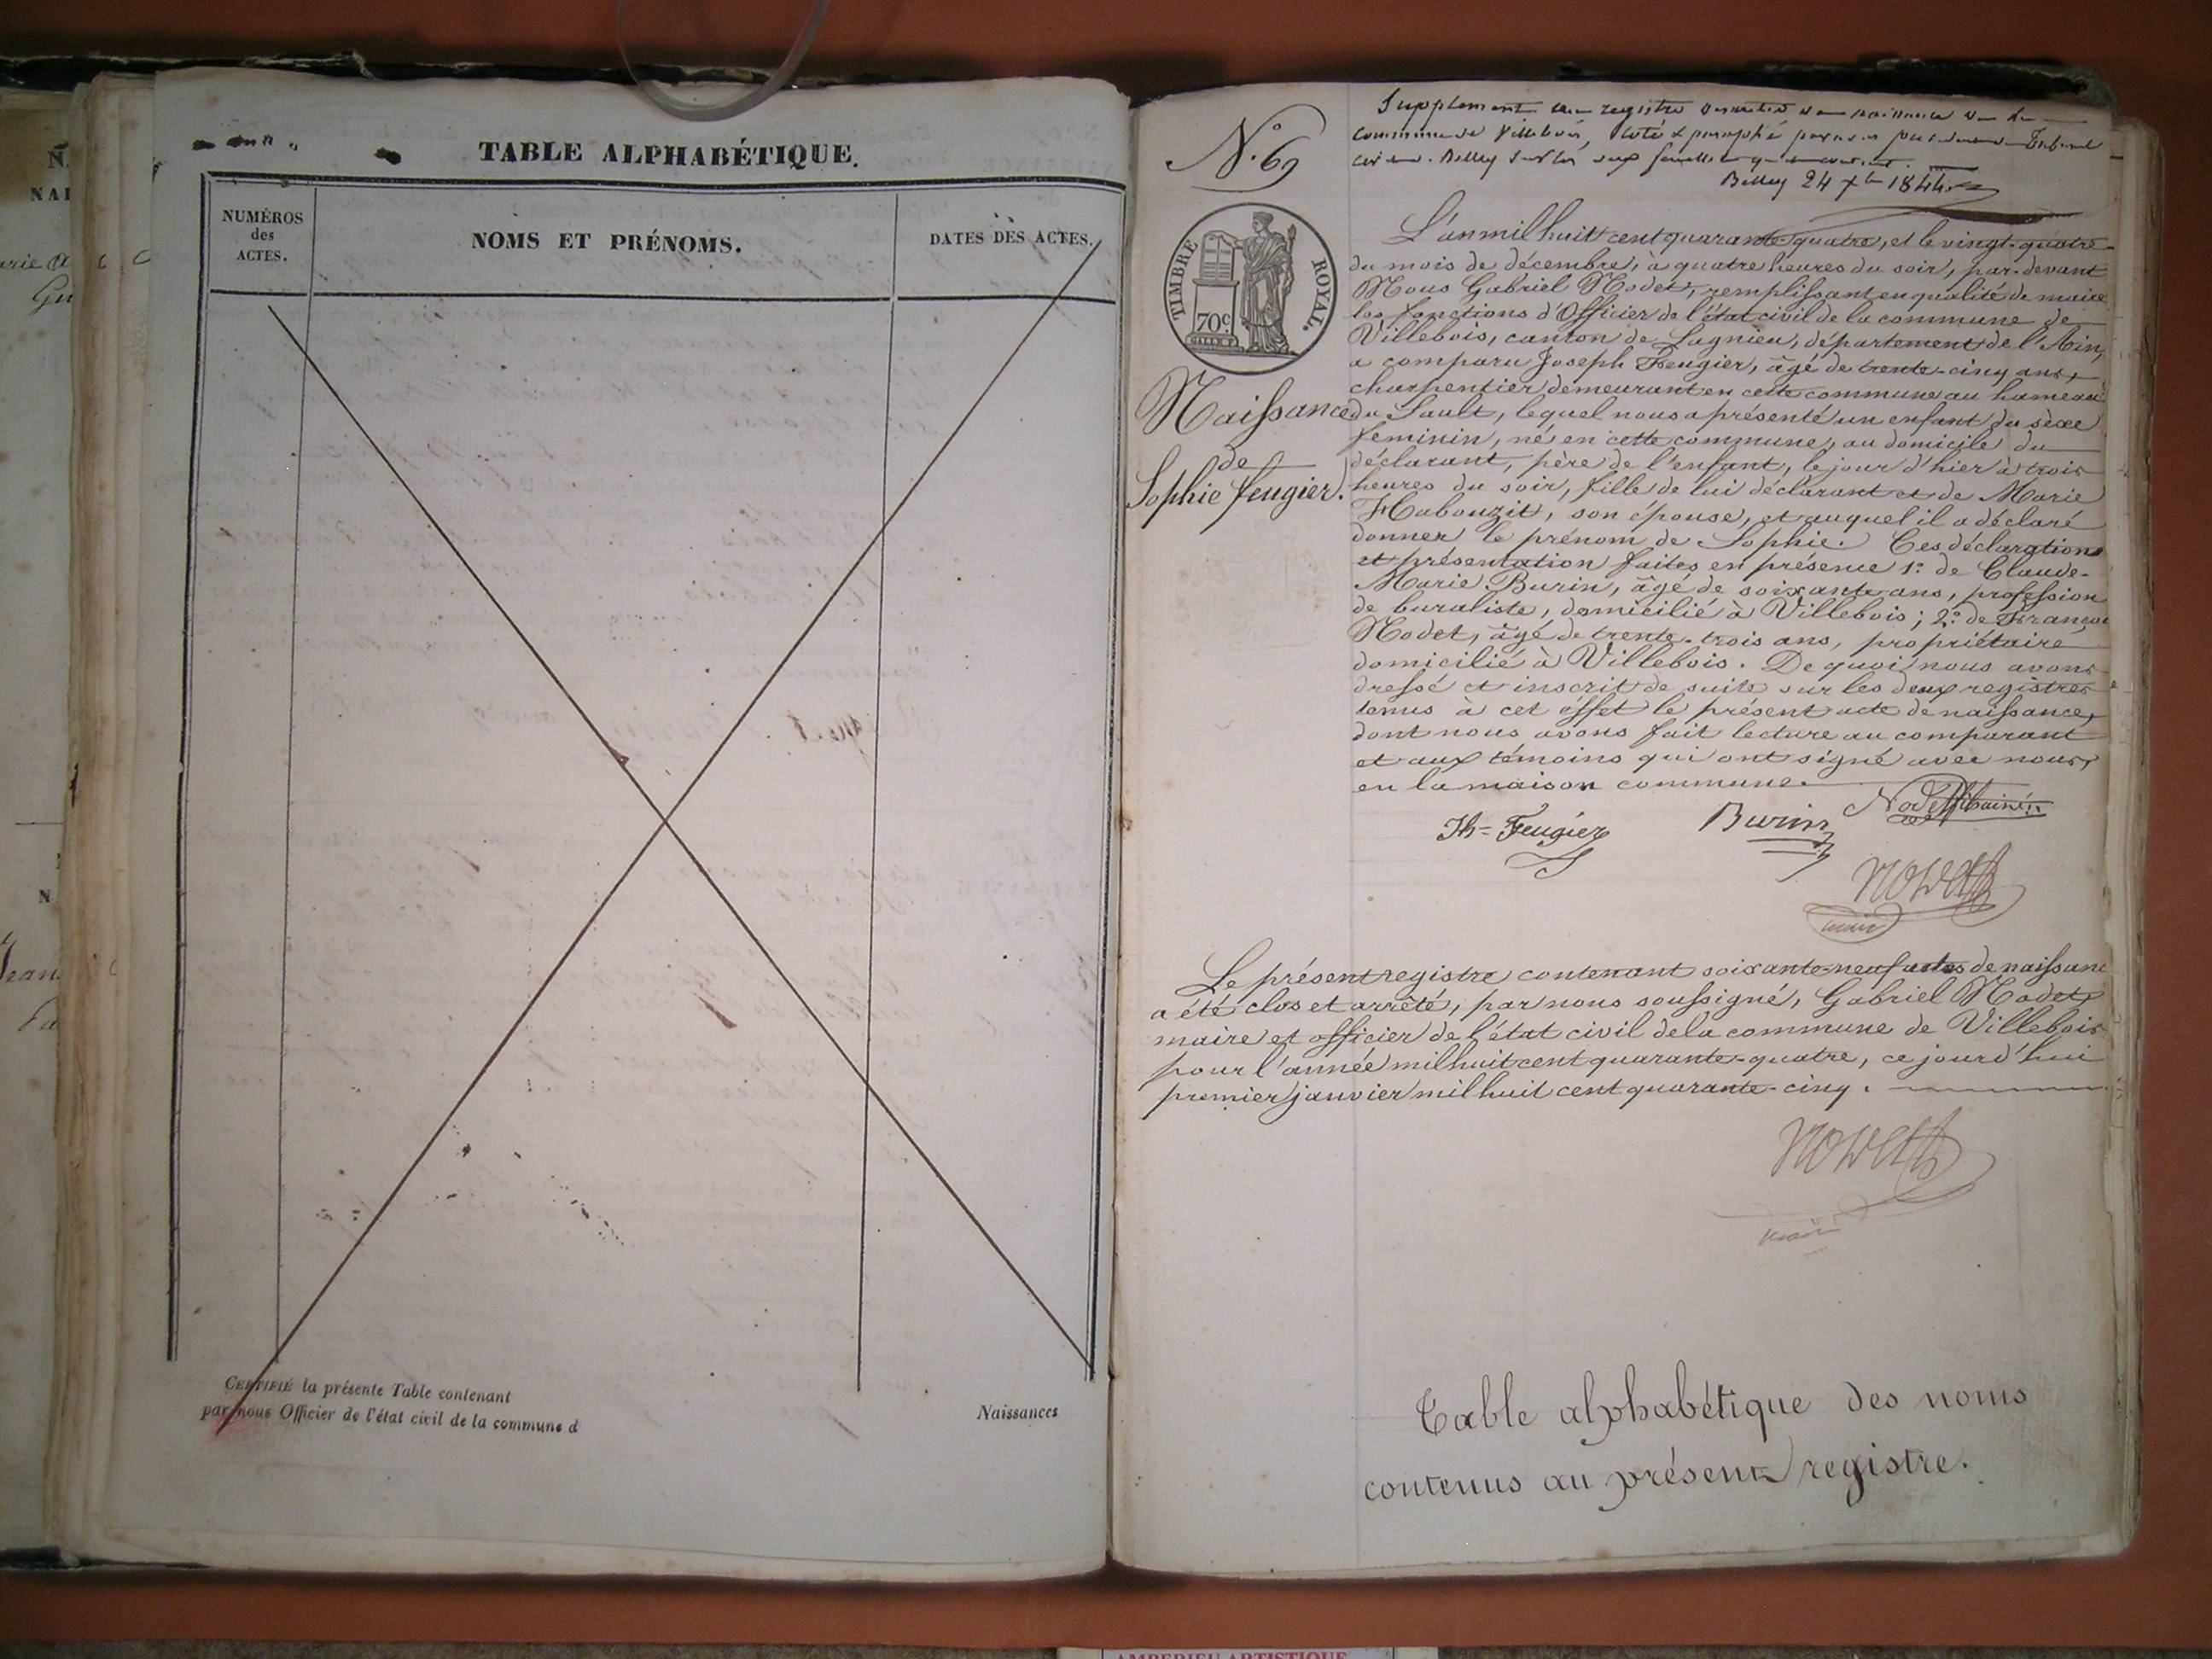 TABLE ALPHABÉTIQUE.
NUMÉROS
des
ACTES.
NOMS ET PRÉNOMS.
DATES DES ACTES.
CERTIFIÉ la présente Table contenant
par nous Officier de l'état civil de la commune d
Naissances
Supplement au registre des actes de naissance de la
commune de Villebois, coté & paraphé par nous president du Tribunal
civil de Belley
Belley 24 Xbre 1844.
N.º 69
TIMBRE ROYAL.
70c
Naissance
de
Sophie feugier.
L'an mil huit cent quarante-quatre, et le vingt-quatre
du mois de décembre, à quatre heures du soir, par-devant
Nous Gabriel Nodet, remplissant en qualité de maire
les fonctions d'Officier de l'état civil de la commune de
Villebois, canton de Lagnieu, département de l'Ain,
a comparu Joseph Feugier, âgé de trente-cinq ans,
charpentier demeurant en cette commune au hameau
du Sault, lequel nous a présenté un enfant du sèxe
féminin, né en cette commune, au domicile du
déclarant, père de l'enfant, le jour d'hier à trois
heures du soir, fille de lui déclarant et de Marie
Habouzit, son épouse, et auquel il a déclaré
donner le prénom de Sophie. Ces déclarations
et présentation faites en présence 1º. de Claude-
Marie Burin, âgé de soixante ans, profession
de buraliste, domicilié à Villebois; 2º. de François
Nodet, âgé de trente-trois ans, propriétaire
domicilié à Villebois. De quoi nous avons
dressé et inscrit de suite sur les deux registres
tenus à cet effet le présent acte de naissance,
dont nous avons fait lecture au comparant
et aux témoins qui ont signé avec nous,
en la maison commune.
Jh= Feugier Burin Nodet
Nodet
maire
Le présent registre contenant soixante-neuf actes de naissance
a été clos et arrêté, par nous soussigné, Gabriel Nodet,
maire et officier de l'état civil de la commune de Villebois
pour l'année mil huit cent quarante-quatre, ce jourd'hui
premier janvier mil huit cent quarante-cinq.
Nodet
maire
Table alphabétique des noms
contenus au présent registre.
AMBERIEU ARTISTIQUE